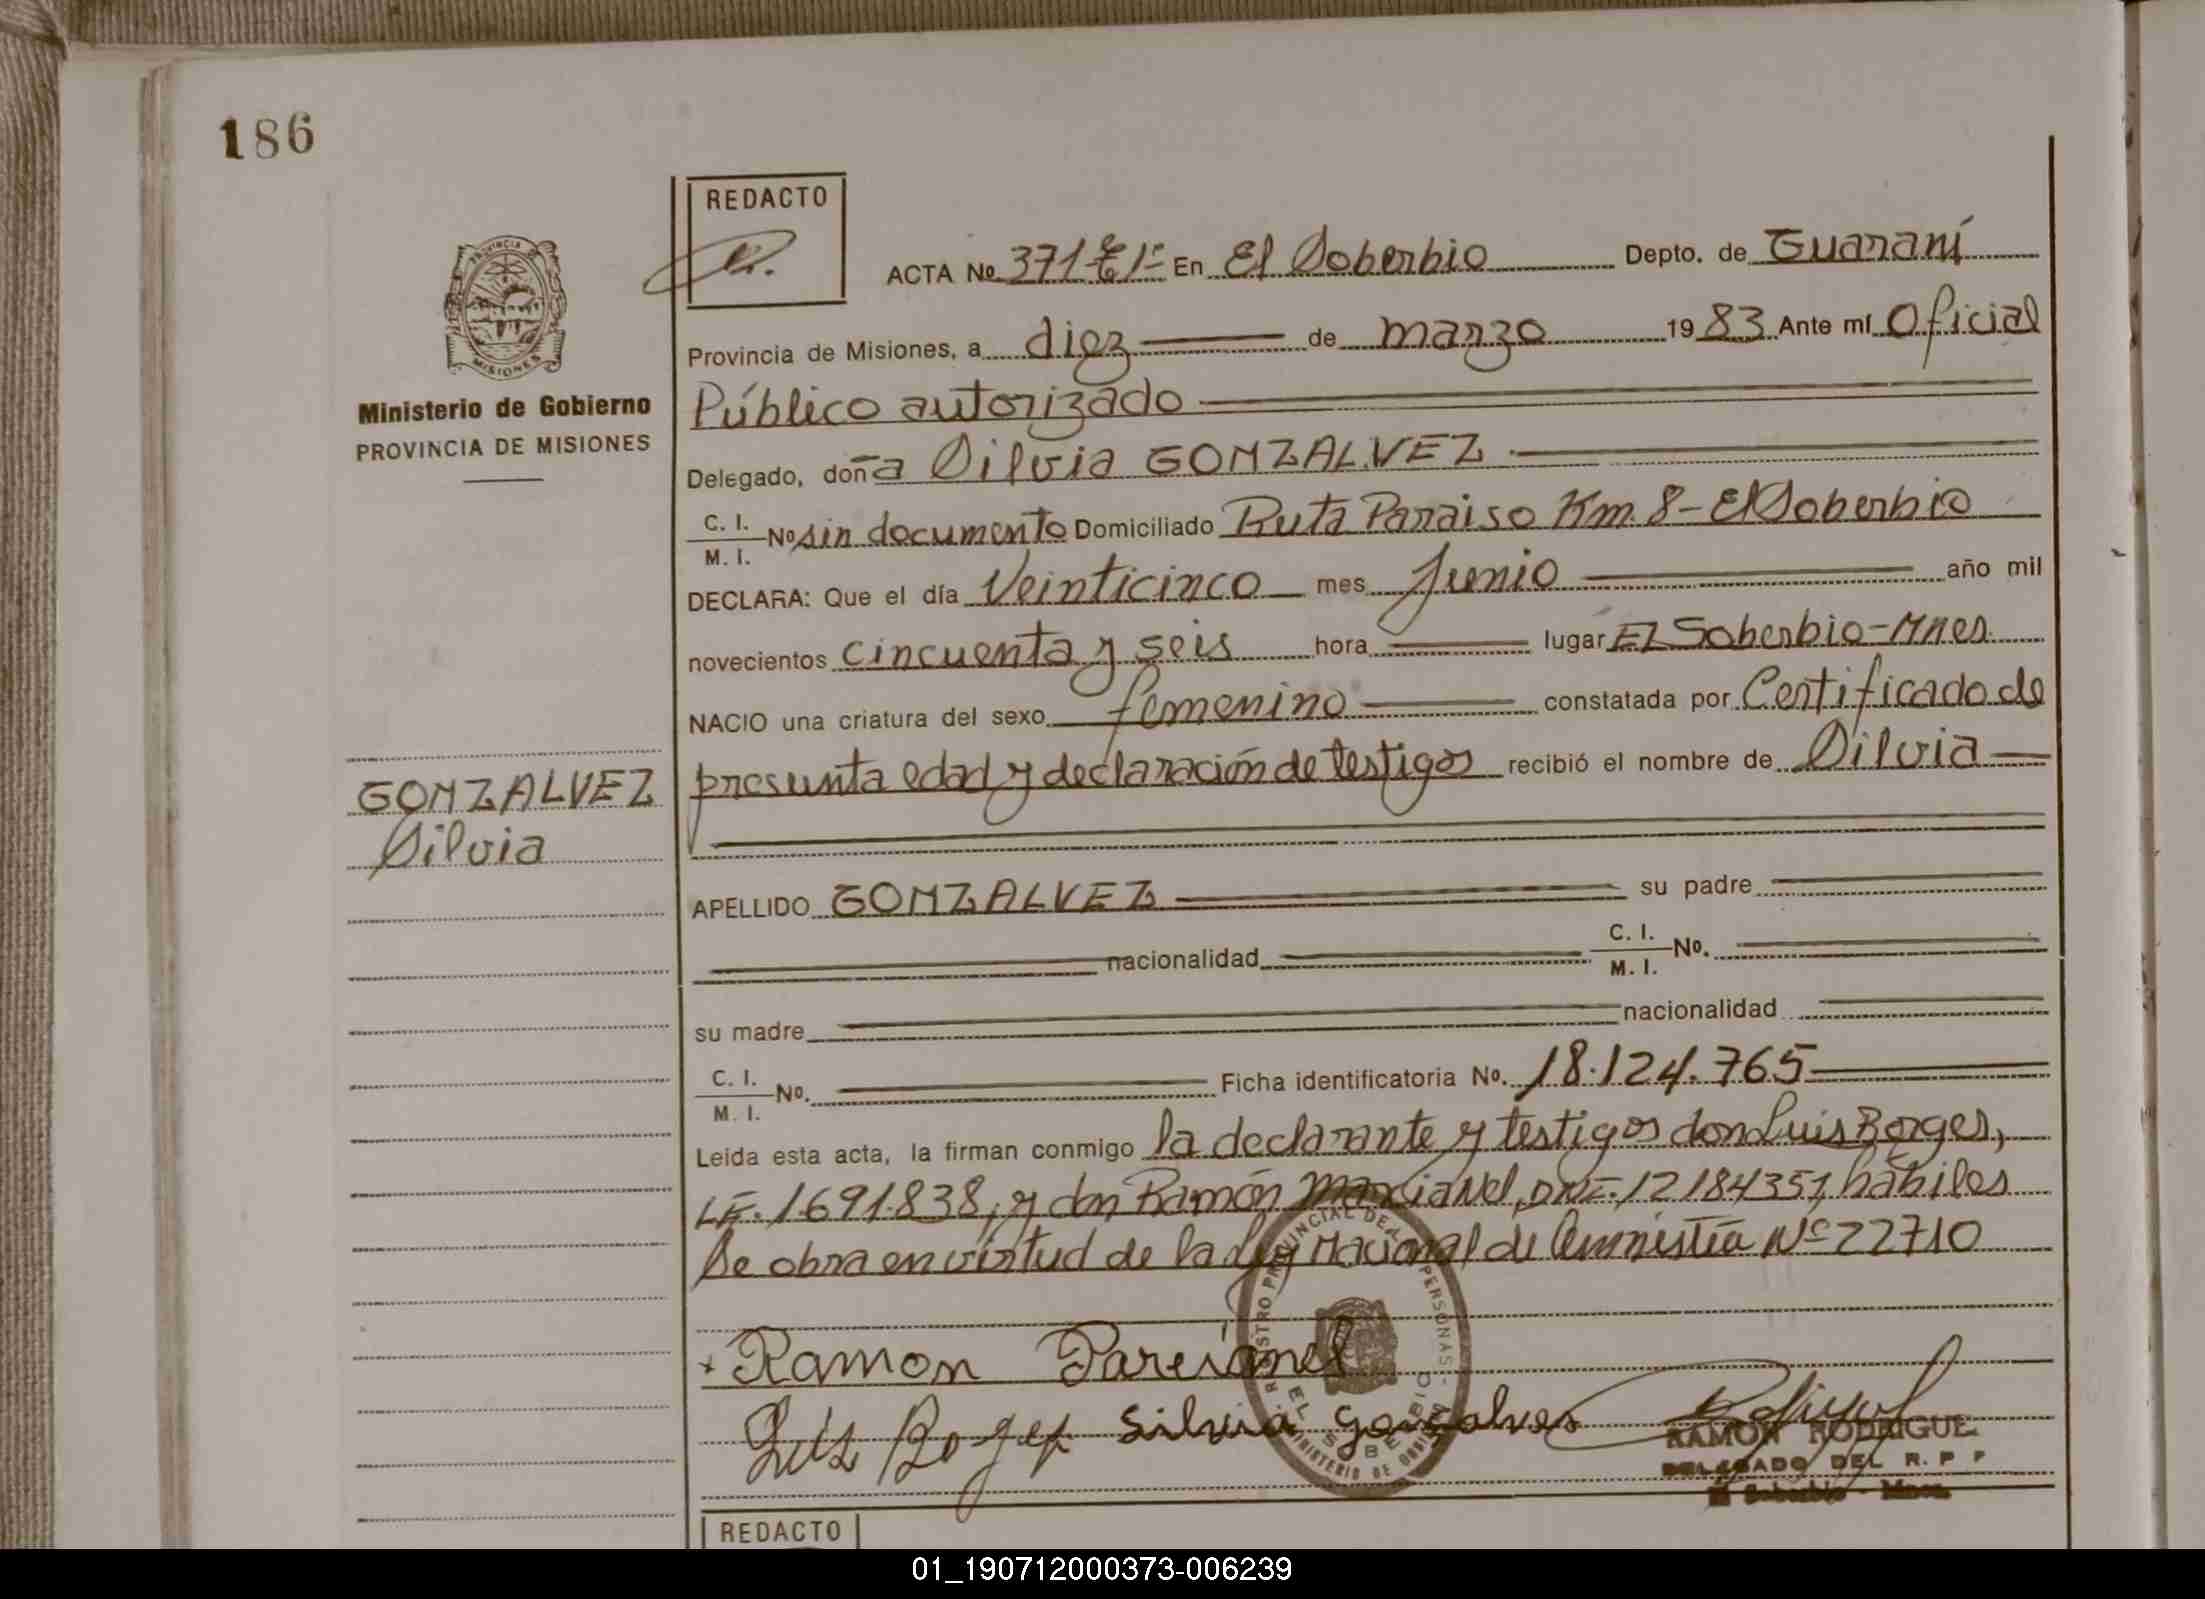 186
REDACTO
ACTA No. 371 tº 1º En El Soberbio Depto. de Guaraní
PROVINCIA
MISIONES
Provincia de Misiones, a diez de marzo 1983 Ante mí Oficial
Ministerio de Gobierno
PROVINCIA DE MISIONES
Público autorizado
Delegado, doña Silvia GONZALVEZ
C. I.
M. I.
No sin documento Domiciliado Ruta Paraiso Km. 8 - El Soberbio
DECLARA: Que el día Veinticinco mes Junio año mil
novecientos cincuenta y seis hora lugar El Soberbio - Mnes.
NACIO una criatura del sexo femenino constatada por Certificado de
presunta edad y declaración de testigos recibió el nombre de Silvia
GONZALVEZ
Silvia
APELLIDO GONZALVEZ su padre
nacionalidad C. I.
M. I. No.
su madre nacionalidad
C. I.
M. I. No. Ficha identificatoria No. 18.124.765
Leida esta acta, la firman conmigo la declarante y testigos don Luis Borges,
LE. 1691.838, y don Ramón DNI. 12184351, hábiles
Se obra en virtud de la Ley Nacional de Amnistía Nº 22710
REGISTRO PROVINCIAL DE LAS PERSONAS
EL SOBERBIO
MINISTERIO DE GOBIERNO
Ramon
Luis Borges Silvia Gonçalves
RAMON RODRIGUE
DELEGADO DEL R. P P
El Soberbio - Mnes.
REDACTO
01_190712000373-006239